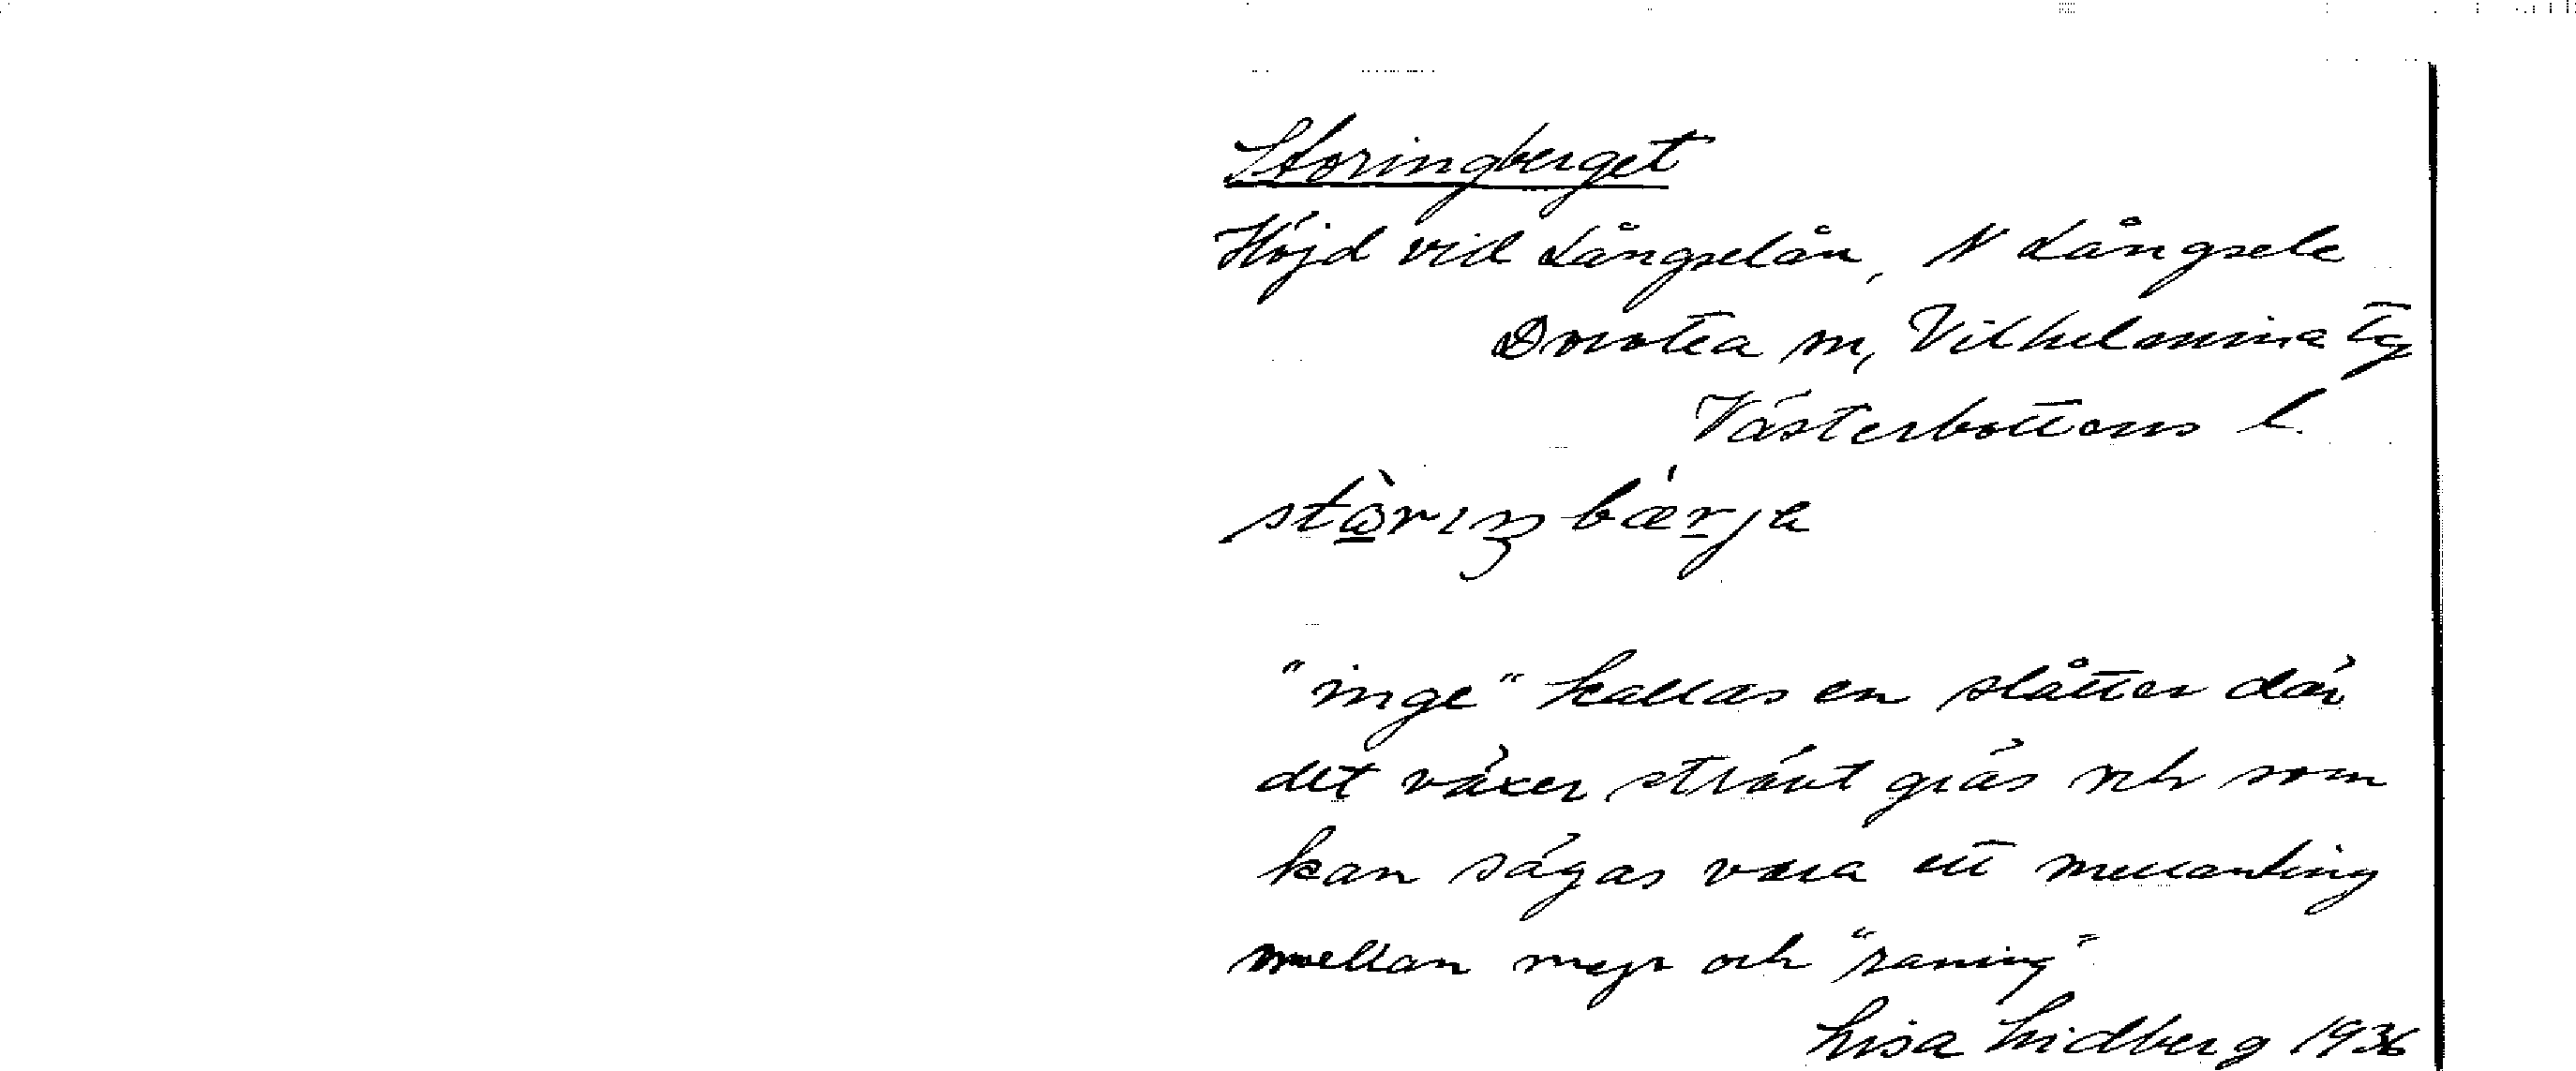 Storingberget
Höjd vid Långselån, N Långsele
Dorotea sn, Vilhelmina tg
Västerbottens l.
stò̠rɪŋbær̠ja
"inge" kallas en slåtter där
det växer strävt gräs och som
kan sägas vara ett mellanting
mellan myr och "raning"
Lisa Lidberg 1936